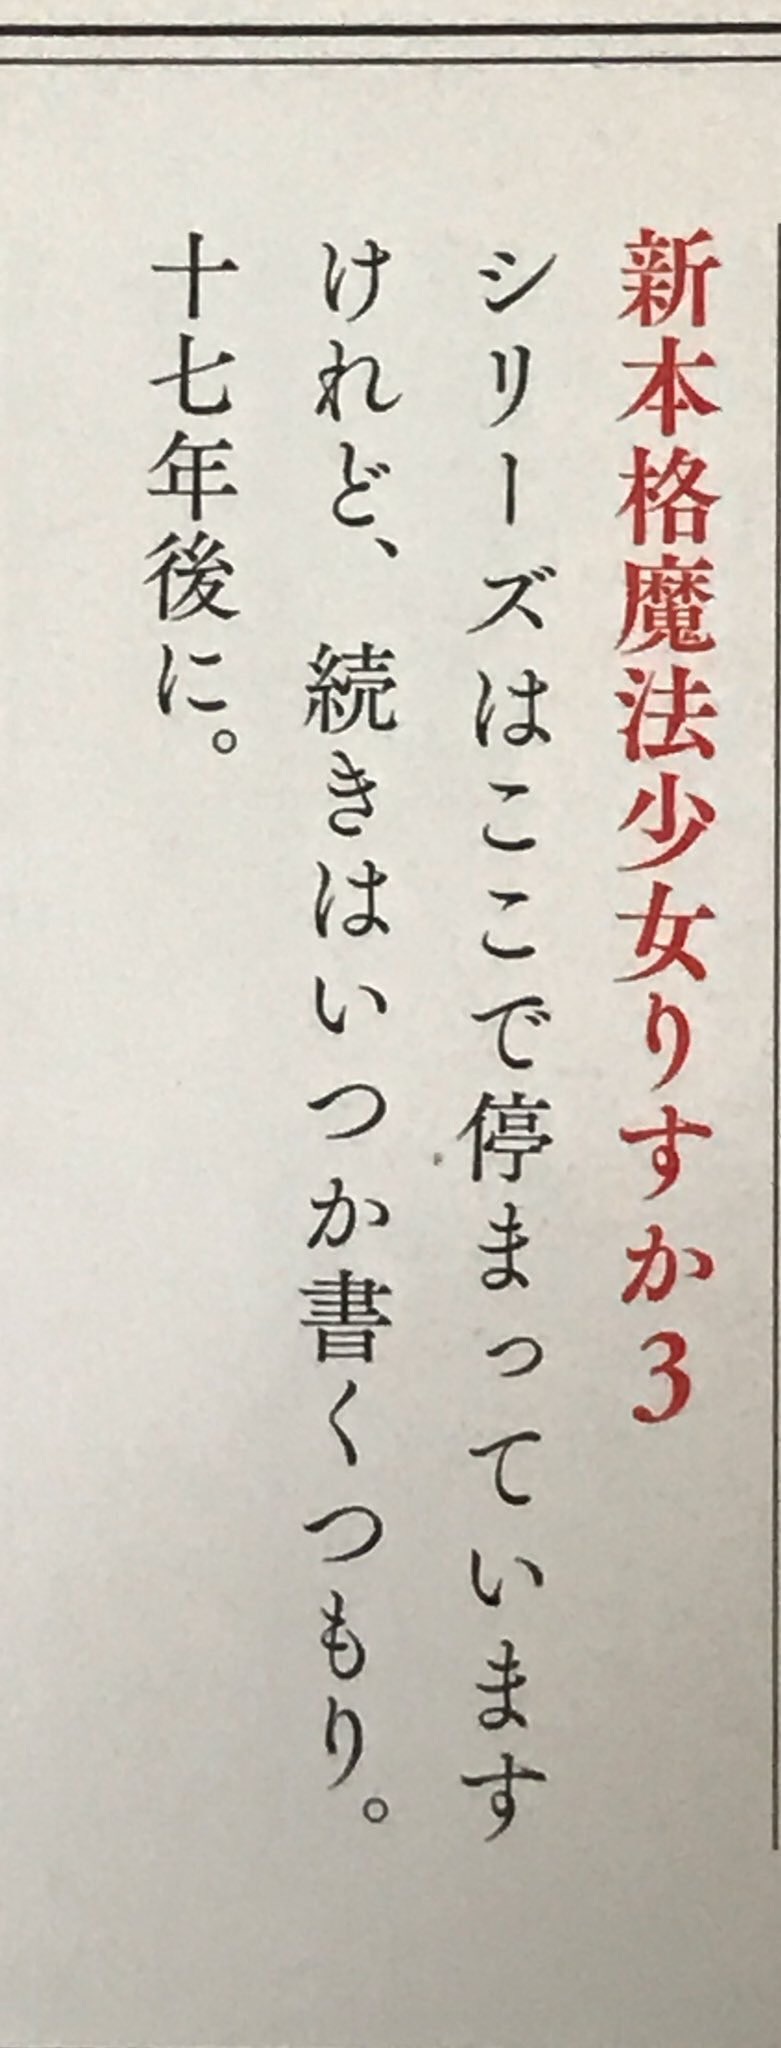 新本格魔法少女りすか3
シリーズはここで停まっています
けれど、続きはいつか書くつもり。
十七年後に。